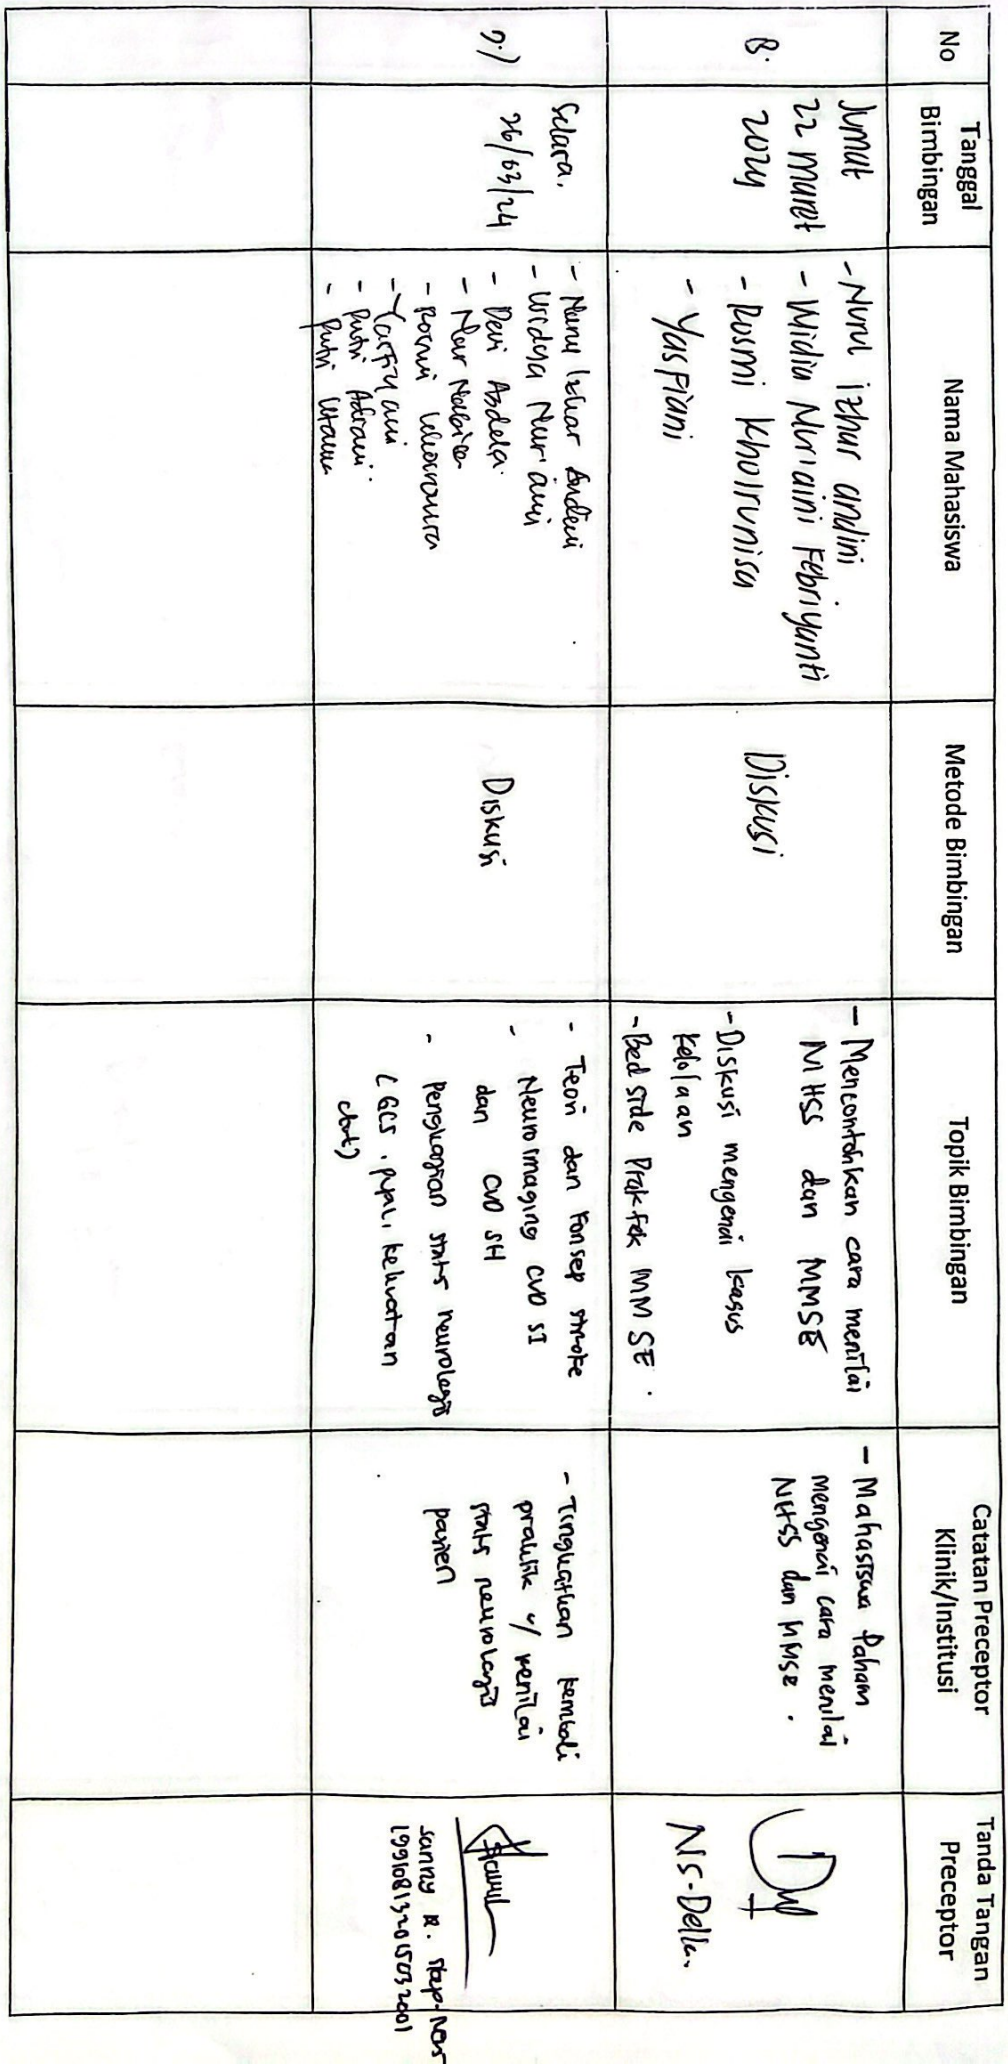 No
Tanggal
Bimbingan
Nama Mahasiswa
Metode Bimbingan
Topik Bimbingan
Catatan Preceptor
Klinik/Institusi
Tanda Tangan
Preceptor
8.
Jumat
22 maret
2024
- Nurul izhar andini
- Widia Nuriaini Febriyanti
- Rosmi Khoirunisa
- Yaspiani
Diskusi
- Mencontohkan cara menilai
NHSS dan MMSE
- Diskusi mengenai kasus
kelolaan
- Bedside Praktek MMSE.
- Mahasiswa Paham
mengenai cara menilai
NHSS dan MMSE.
NS-Della.
9/
Selasa,
26/03/24
- Nurul Izhar Andini
- Widya Nur'aini
- Devi Asdela
- Nur Nabila
- Rosmi
- Yasfiyani
- Putri
- Putri Utama
Diskusi
- Teori dan Konsep stroke
- Neuroimaging CVD SI
dan CVD SH
- Pengkajian status neurologis
(GCS, pupil, kekuatan
- Tingkatkan kembali
praktik y/ menilai
status neurologis
pasien
Sanny R.
199108132015032001